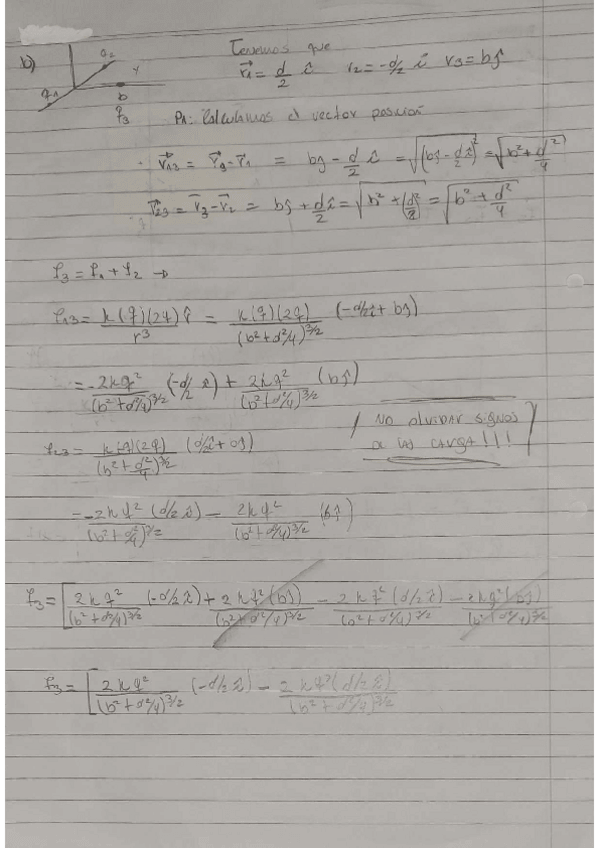 b) q₂ y q₁ b q₃
Tenemos que
r⃗₁ = d/2 î r₂ = -d/2 î r₃ = bĵ
P₁: Calculamos el vector posición
r⃗₁₃ = r⃗₃ - r⃗₁ = bĵ - d/2 î = √(bĵ - d/2 î)² = √b² + d²/4
r⃗₂₃ = r⃗₃ - r⃗₂ = bĵ + d/2 î = √b² + (d/2)² = √b² + d²/4
F₃ = F₁ + F₂ →
F₁₃ = k(q)(2q) r̂ / r³ = k(q)(2q) / (b² + d²/4)^3/2 (-d/2 î + bĵ)
= 2kq² / (b² + d²/4)^3/2 (-d/2 î) + 2kq² / (b² + d²/4)^3/2 (bĵ)
NO olvidar signos
de las carga!!!
F₂₃ = k(-q)(2q) / (b² + d²/4)^3/2 (d/2 î + bĵ)
= -2kq² (d/2 î) / (b² + d²/4)^3/2 - 2kq² / (b² + d²/4)^3/2 (bĵ)
F₃ = [2kq² / (b² + d²/4)^3/2 (-d/2 î) + 2kq² (bĵ) / (b² + d²/4)^3/2 - 2kq² (d/2 î) / (b² + d²/4)^3/2 - 2kq² (bĵ) / (b² + d²/4)^3/2
F₃ = [2kq² / (b² + d²/4)^3/2 (-d/2 î) - 2kq² (d/2 î) / (b² + d²/4)^3/2